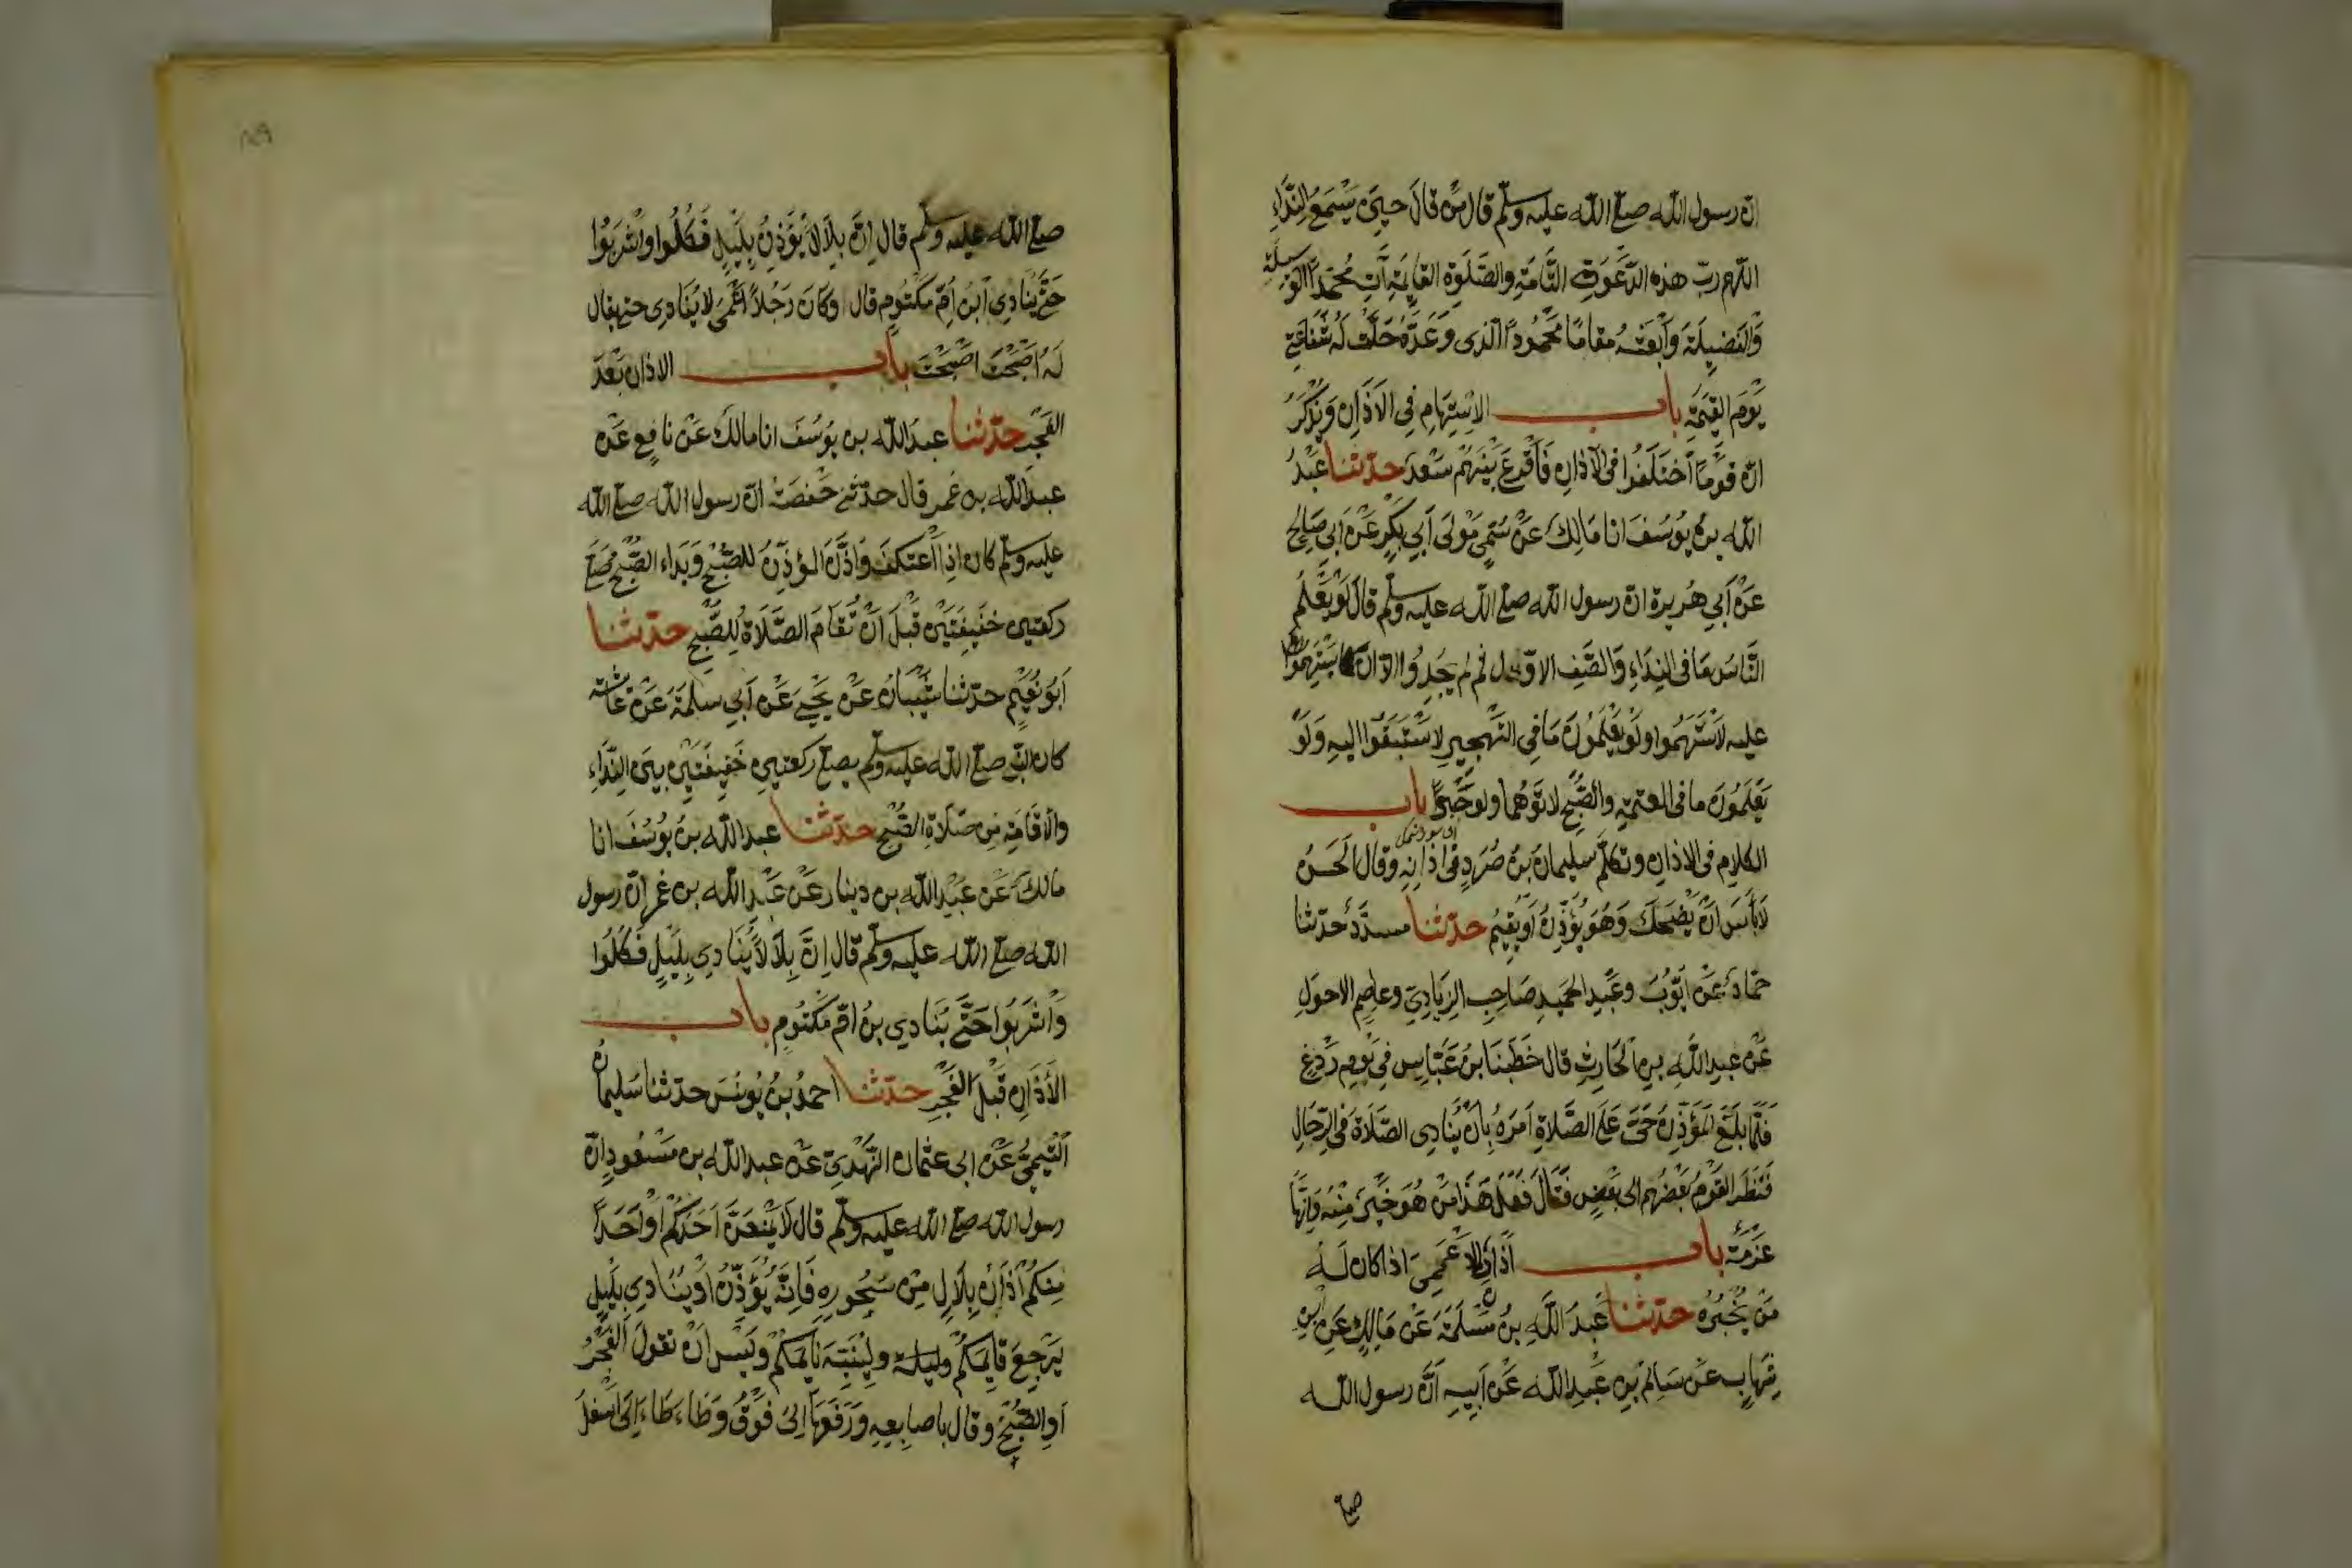 ان رسول الله صلى الله عليه وسلم قال من قال حين يَسْمَعُ النِّدَاءَ
اللهم ربّ هذه الدَّعْوَةِ التَّامَّةِ والصَّلَوةِ القَائِمَةِ آتِ مُحَمَّدًا الوَسيلة
وَالفَضِيلَةَ وَابْعَثْهُ مقامًا مَحْمُودًا الّذى وَعَدْتَهُ حَلَّتْ لَهُ شَفَاعَتِي
يَوْمَ القِيمَةِ باب الاسْتِهَامِ فِي الاَذَانِ وَيُذْكَرُ
انّ قَوْمًا اَخْتَلَفُوا فى الاذانِ فَاَقْرَعَ بَيْنَهُمْ سَعْدٌ حدّثنا عَبْدُ
الله بن يُوسُفَ انا مَالِك عَنْ سُمَيٍّ مَوْلَى اَبِي بَكْرٍ عَنْ اَبِي صَالِحٍ
عَنْ اَبِي هُريرة انّ رسول الله صلى الله عليه وسلم قالَ لَوْ يَعْلَمُ
النَّاسُ مَا فى النِدَاءِ وَالصَّفِ الاوّل ثم لم يَجِدُوا الّا ان يَسْتَهِمُوا
عليه لاَسْتَهَمُوا ولَوْ يَعْلَمُونَ مَا فِى التَّهْجِيرِ لاسْتَبَقُوا اليهِ وَلَوْ
يَعْلَمُونَ ما فى العتمةِ والصُّبْحِ لاتَوْهُمَا ولو حَبْوًا باب
الكلامِ فى الاذانِ وتكلّمَ سليمانُ بنُ صُرَدٍ فى اذانِهِ وقال الحَسَنُ
لَا بَأسَ انْ يَضْحَكَ وَهُوَ يُؤَذِّنُ اَوْ يُقِيمُ حدّثنا مسدّدٌ حدّثنا
حمّادٌ عَنْ ايّوُبَ وعَبْدِ الحَمِيدِ صَاحِبِ الزِيَادِيِّ وعاصِمِ الاحوَلِ
عَنْ عبدِ اللَّهِ بنِ الحَارِثِ قال خَطَبَنَا ابنُ عَبَّاسٍ فِى يَوْمٍ رَدْغٍ
فَلَمَّا بَلَغَ المُؤَذِّنُ حَىَّ عَلَى الصَّلَاةِ اَمَرَهُ بِاَنْ يُنَادِى الصّلَاةَ فى الرِّحَالِ
فَنَظَرَ القَوْمُ بَعْضُهُم الى بَعْضٍ فَقَالَ فَعَلَ هَذَا مَنْ هُوَ خَيْرٌ مِنْهُ وَاِنَّهَا
عَزْمَةٌ باب أَذَانِ الاَعْمَى اذا كان لَه
مَنْ يُخْبِرُهُ حدّثنا عَبدُ اللَّهِ بنُ مَسْلَمَةَ عَنْ مَالِكٍ عَنِ ابنِ
شِهَابٍ عَنْ سَالِمِ بنِ عَبْدِ الله عَنْ اَبِيهِ اَنَّ رسول الله
صلى
صلى الله عليه وسلم قال اِنّ بِلَالًا يُؤَذِّنُ بِلَيْلٍ فَكُلُوا واشْرَبُوا
حَتَّى يُنَادِيَ ابنُ اُمّ مَكْتُومٍ قال وكَانَ رَجُلًا اَعْمَى لا يُنَادِى حتى يقال
لَهُ اَصْبَحْتَ اَصْبَحْتَ باب الاذان بَعْدَ
الفَجْرِ حدّثنا عبدُ الله بن يُوسُفَ انا مالك عَنْ نَافِعٍ عَنْ
عبدِ الله بن عُمر قال حدّثتنى حَفْصَةُ انّ رسول الله صلى الله
عليه وسلم كان اذا اعْتكفَ وَاَذَّنَ المؤذّنُ للصُّبْحِ وَبَدَاء الصُّبْحُ صَلَّى
ركعتين خَفِيفَتَيْنِ قَبْلَ اَنْ تُقَامَ الصَّلَاةُ لِلصُّبْحِ حدّثنا
اَبُو نُعَيْمٍ حدّثنا شَيْبَانُ عَنْ يَحْيَى عَنْ اَبِي سلمَةَ عَنْ عَائشة
كان النبيّ صلى الله عليه وسلم يصلى ركعتين خَفِيفَتَيْنِ بين النِّدَاءِ
والاقَامَةِ مِن صَلَاةِ الصُّبْحِ حدّثنا عبد الله بنُ يُوسُفَ انا
مالك عَن عَبْدِ الله بن دينار عَنْ عَبْدِ الله بن عُمر انّ رسول
الله صلى الله عليه وسلم قال اِنَّ بِلَالًا يُنَادِي بِلَيْلٍ فَكُلُوا
وَاشْرَبُوا حَتَّى يُنَادِي بنُ امِّ مَكْتُومٍ باب
الأذَانِ قَبْلَ الفَجْرِ حدّثنا احمدُ بنُ يُونسَ حدّثنا سُليمان
التَّيْمِيُّ عَنْ ابى عثمان النَّهْدِيّ عَنْ عبد الله بن مَسْعُودٍ انّ
رسول الله صلى الله عليه وسلم قال لَا يَمْنَعَنَّ اَحَدَكُمْ اَوْ اَحَدًا
مِنكُمْ أَذَانُ بِلَالٍ مِنْ سَحُورِهِ فَاِنَّهُ يُؤَذِّنُ اَوْ يُنَادِي بِلَيْلٍ
يَرْجِعَ قائِمَكُمْ وليُنَبِّهَ نَائِمَكُمْ ولَيْسَ انْ يقولَ الفَجْرُ
اَوِ الصُّبْحُ وقال باصابِعِهِ وَرَفَعَهَا اِلَى فَوْقُ وطَاءطَاءَ اِلَى اَسْفَلَ